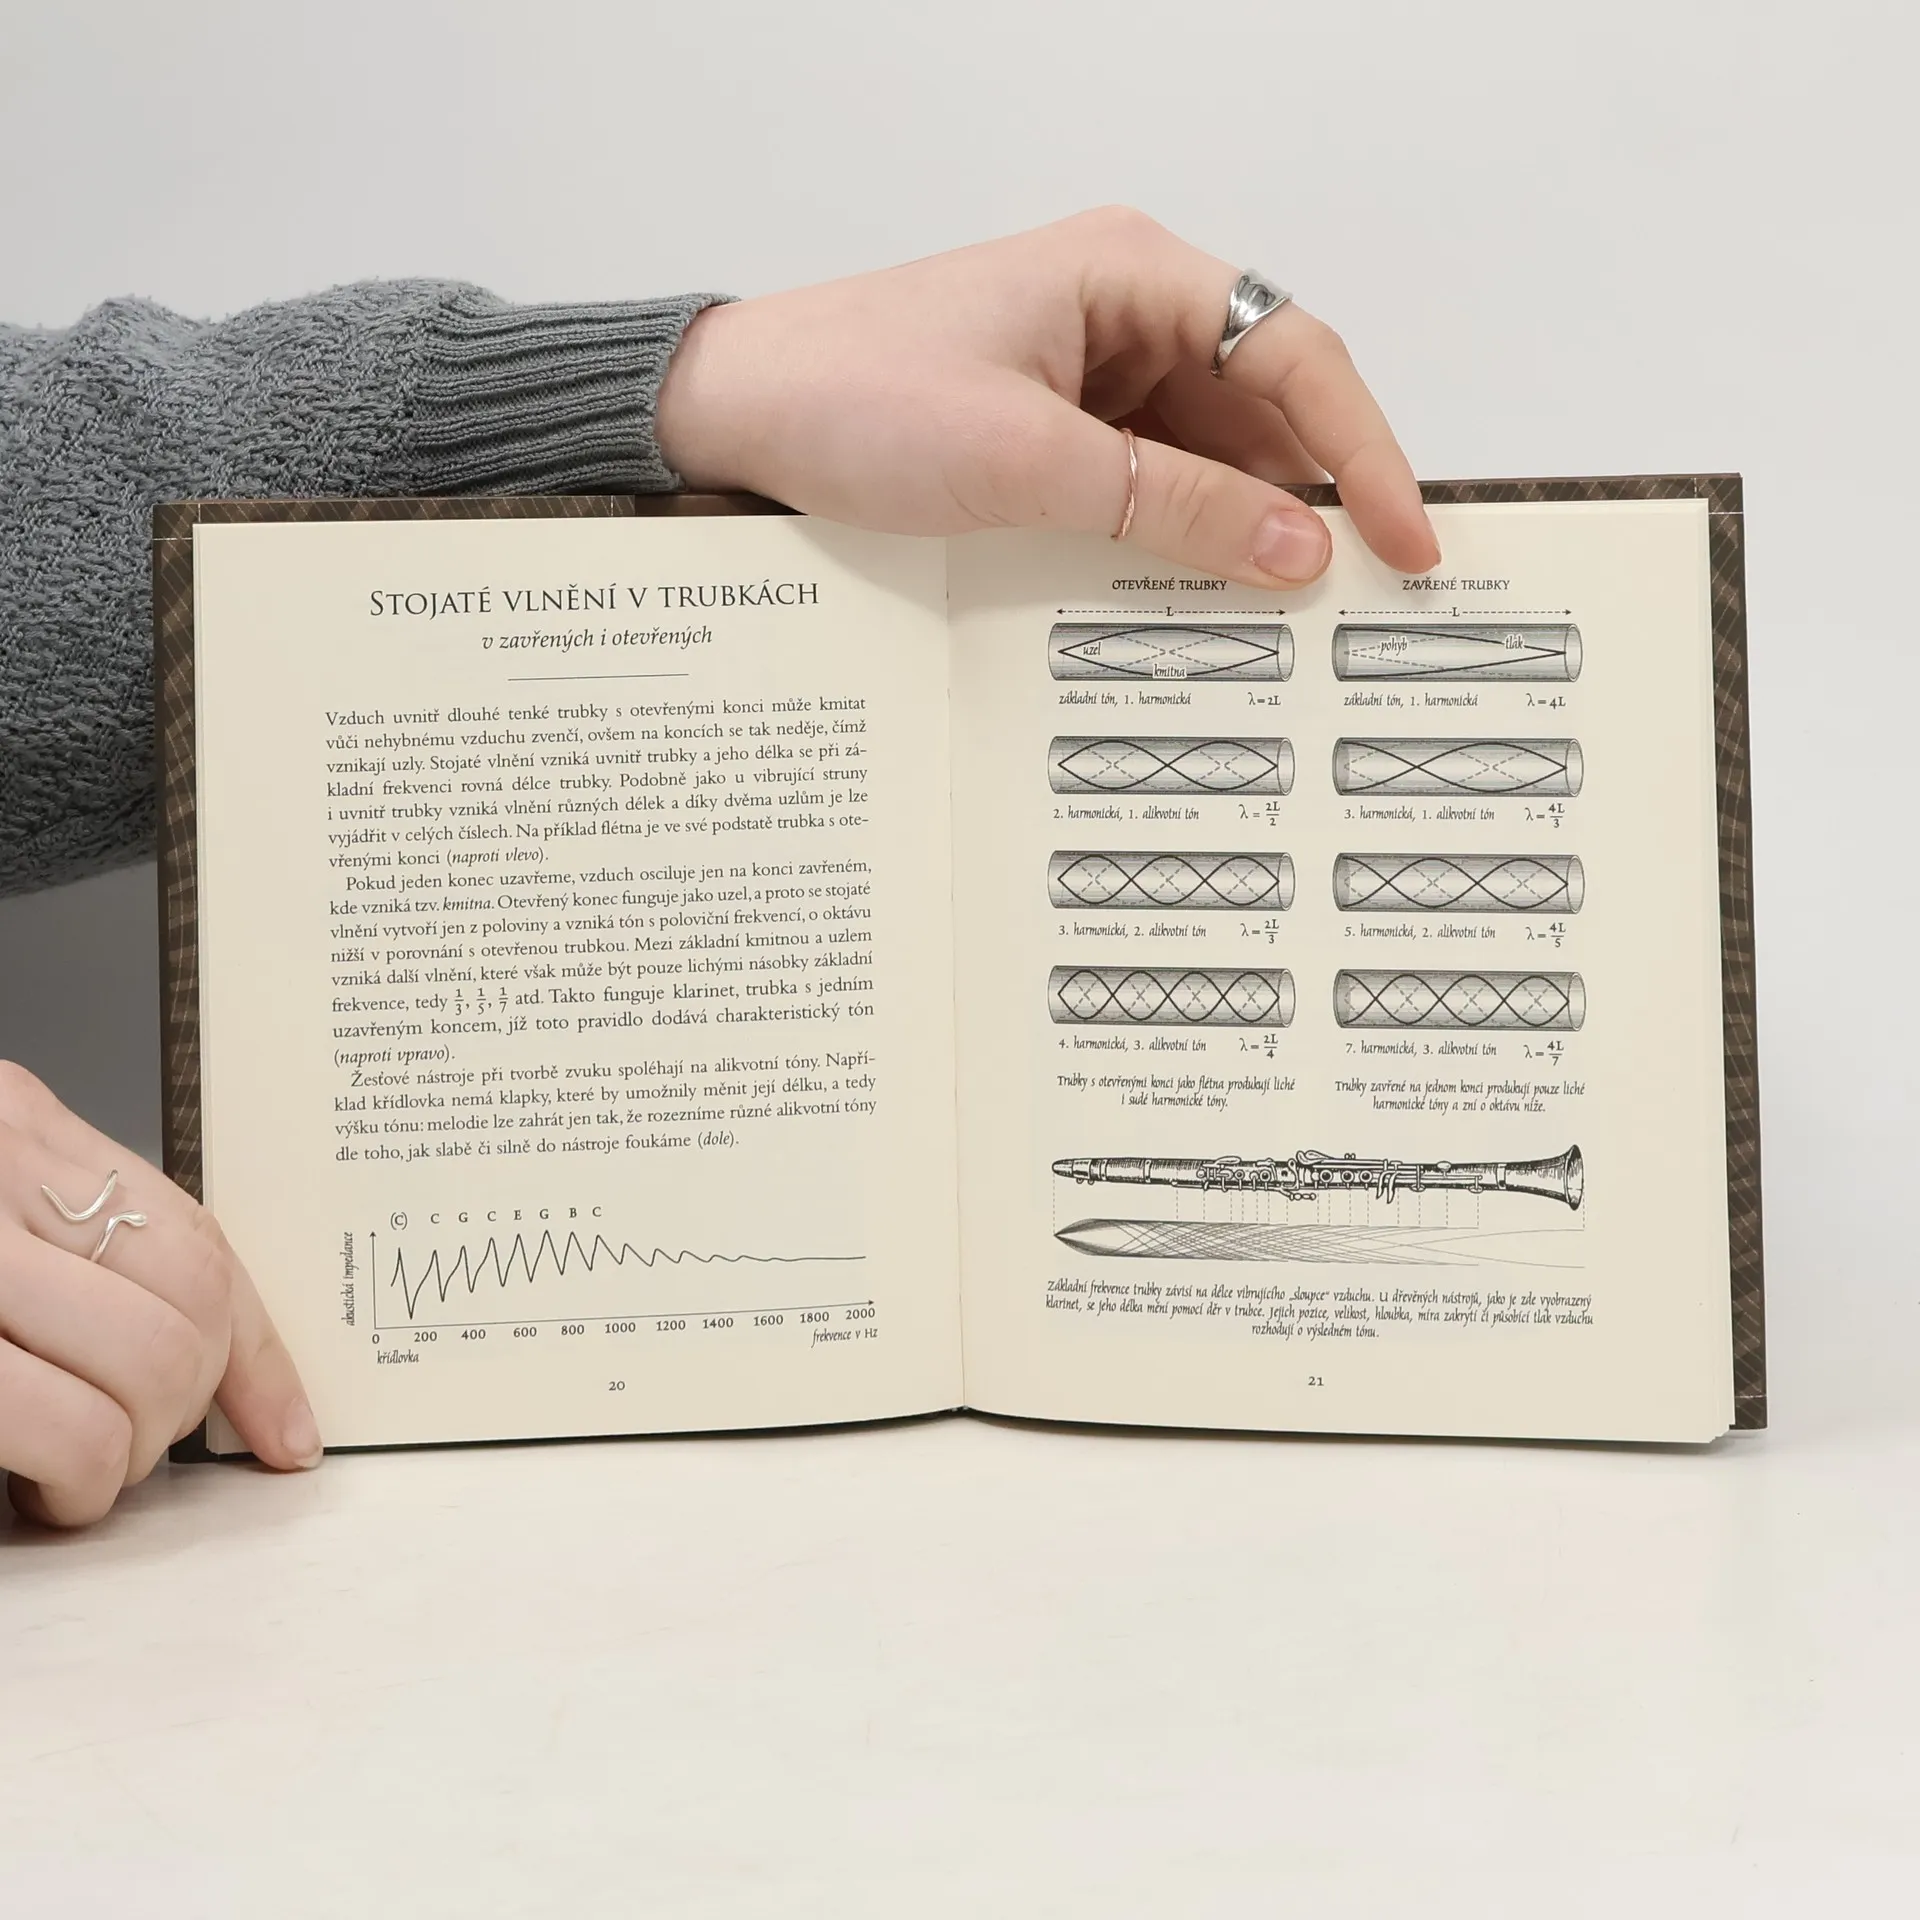 STOJATÉ VLNĚNÍ V TRUBKÁCH
v zavřených i otevřených
Vzduch uvnitř dlouhé tenké trubky s otevřenými konci může kmitat
vůči nehybnému vzduchu zvenčí, ovšem na koncích se tak neděje, čímž
vznikají uzly. Stojaté vlnění vzniká uvnitř trubky a jeho délka se při zá-
kladní frekvenci rovná délce trubky. Podobně jako u vibrující struny
i uvnitř trubky vzniká vlnění různých délek a díky dvěma uzlům je lze
vyjádřit v celých číslech. Na příklad flétna je ve své podstatě trubka s ote-
vřenými konci (naproti vlevo).
Pokud jeden konec uzavřeme, vzduch osciluje jen na konci zavřeném,
kde vzniká tzv. kmitna. Otevřený konec funguje jako uzel, a proto se stojaté
vlnění vytvoří jen z poloviny a vzniká tón s poloviční frekvencí, o oktávu
nižší v porovnání s otevřenou trubkou. Mezi základní kmitnou a uzlem
vzniká další vlnění, které však může být pouze lichými násobky základní
frekvence, tedy 1/3, 1/5, 1/7 atd. Takto funguje klarinet, trubka s jedním
uzavřeným koncem, jíž toto pravidlo dodává charakteristický tón
(naproti vpravo).
Žesťové nástroje při tvorbě zvuku spoléhají na alikvotní tóny. Napří-
klad křídlovka nemá klapky, které by umožnily měnit její délku, a tedy
výšku tónu: melodie lze zahrát jen tak, že rozezníme různé alikvotní tóny
dle toho, jak slabě či silně do nástroje foukáme (dole).
(C) C G C E G B C
akustická impedance
0 200 400 600 800 1000 1200 1400 1600 1800 2000
frekvence v Hz
křídlovka
20
OTEVŘENÉ TRUBKY
L
uzel
kmitna
základní tón, 1. harmonická λ=2L
2. harmonická, 1. alikvotní tón λ = 2L/2
3. harmonická, 2. alikvotní tón λ = 2L/3
4. harmonická, 3. alikvotní tón λ = 2L/4
Trubky s otevřenými konci jako flétna produkují liché
i sudé harmonické tóny.
ZAVŘENÉ TRUBKY
L
pohyb tlak
základní tón, 1. harmonická λ=4L
3. harmonická, 1. alikvotní tón λ = 4L/3
5. harmonická, 2. alikvotní tón λ = 4L/5
7. harmonická, 3. alikvotní tón λ = 4L/7
Trubky zavřené na jednom konci produkují pouze liché
harmonické tóny a zní o oktávu níže.
Základní frekvence trubky závisí na délce vibrujícího „sloupce“ vzduchu. U dřevěných nástrojů, jako je zde vyobrazený
klarinet, se jeho délka mění pomocí děr v trubce. Jejich pozice, velikost, hloubka, míra zakrytí či působící tlak vzduchu
rozhodují o výsledném tónu.
21